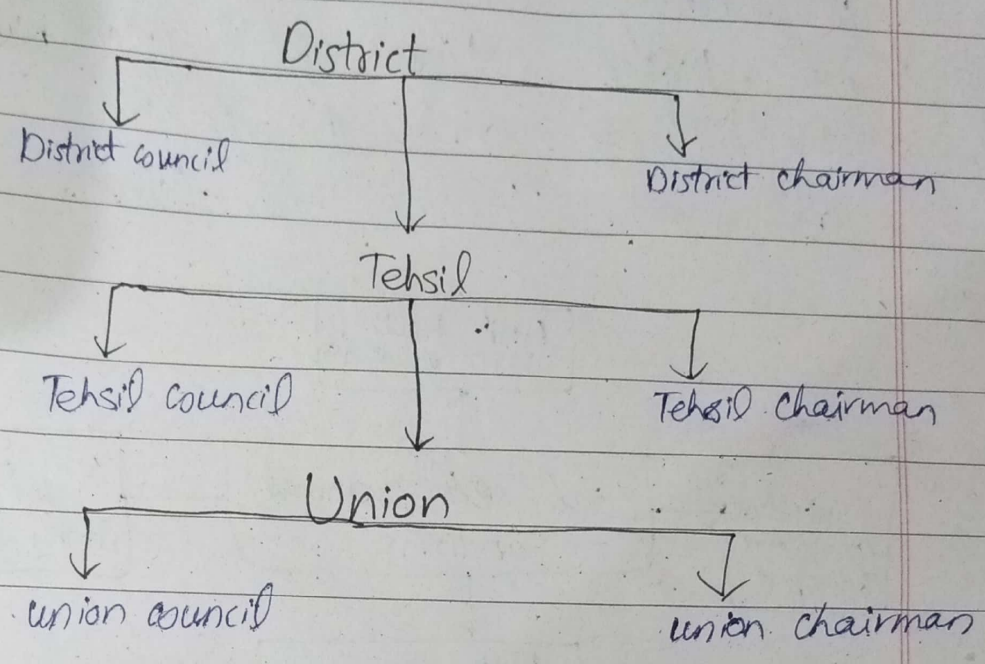 District
District council
District chairman
Tehsil
Tehsil council
Tehsil chairman
Union
union council
union chairman